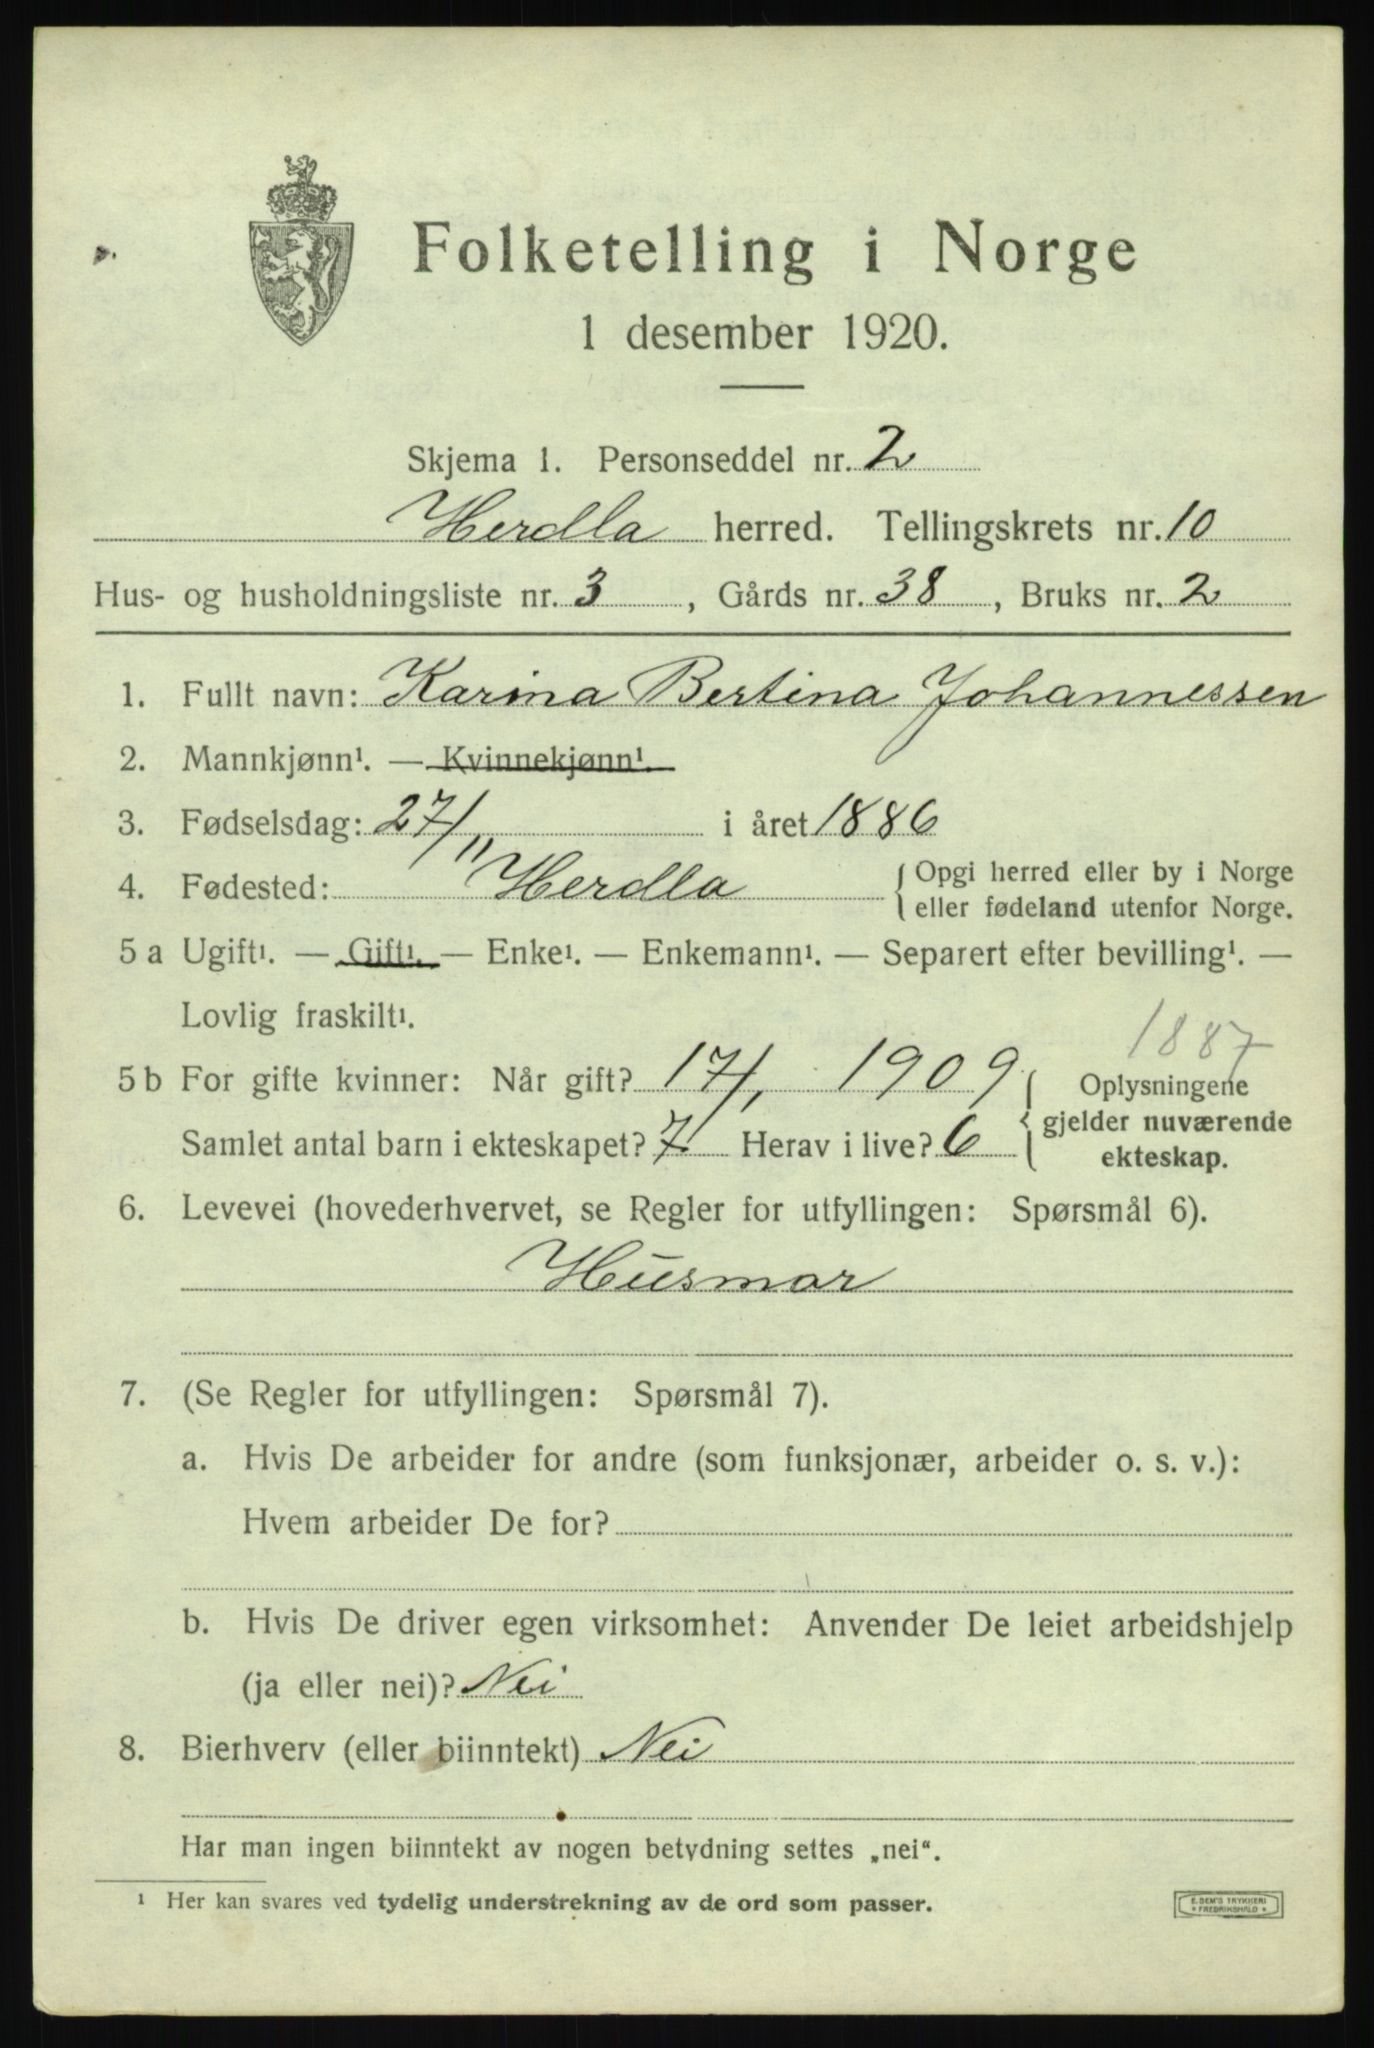 Folketelling i Norge
1 desember 1920.
Skjema 1. Personseddel nr. 2
Herdla herred. Tellingskrets nr. 10
Hus- og husholdningsliste nr. 3, Gårds nr. 38, Bruks nr. 2
1. Fullt navn: Karina Bertina Johannessen
2. Mannkjønn¹. — Kvinnekjønn¹.
3. Fødselsdag: 27/11 i året 1886
4. Fødested: Herdla { Opgi herred eller by i Norge
eller fødeland utenfor Norge.
5 a Ugift¹. — Gift¹. — Enke¹. — Enkemann¹. — Separert efter bevilling¹. —
Lovlig fraskilt¹.
1887
5 b For gifte kvinner: Når gift? 17/1 1909 { Oplysningene
gjelder nuværende
Samlet antal barn i ekteskapet? 7 Herav i live? 6
ekteskap.
6. Levevei (hovederhvervet, se Regler for utfyllingen: Spørsmål 6).
Husmor
7. (Se Regler for utfyllingen: Spørsmål 7).
a. Hvis De arbeider for andre (som funksjonær, arbeider o. s. v.):
Hvem arbeider De for?
b. Hvis De driver egen virksomhet: Anvender De leiet arbeidshjelp
(ja eller nei)? Nei
8. Bierhverv (eller biinntekt) Nei
Har man ingen biinntekt av nogen betydning settes „nei“.
¹ Her kan svares ved tydelig understrekning av de ord som passer.
E. SEM'S TRYKKERI
* FREDRIKSHALD *